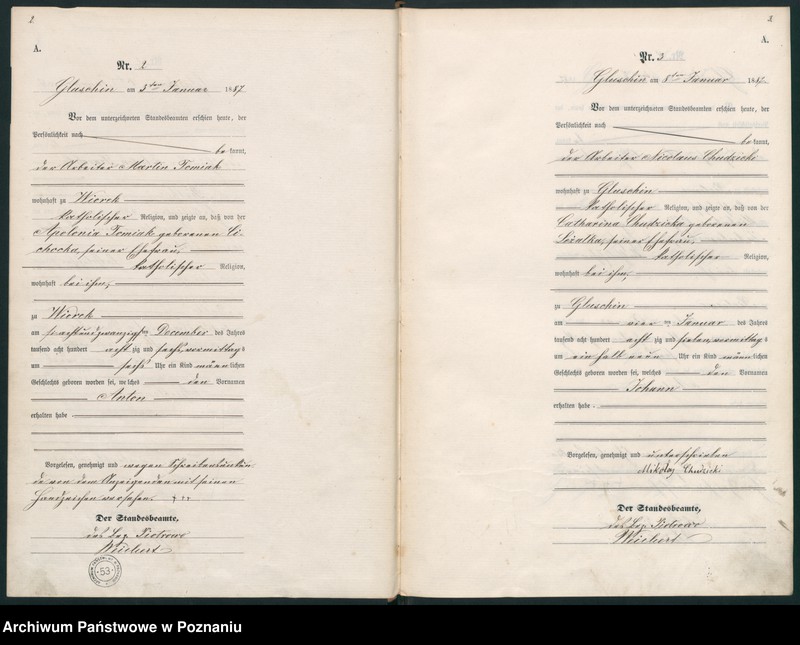 2.
A.
Nr. 2
Gluschin am 3ten Januar 1887
Vor dem unterzeichneten Standesbeamten erschien heute, der
Persönlichkeit nach
be kannt,
der Arbeiter Martin Tomiak
wohnhaft zu Wiorek
katholischer Religion, und zeigte an, daß von der
Apolonia Tomiak geborenen Ci-
chocka, seiner Ehefrau,
katholischer Religion,
wohnhaft bei ihm,
zu Wiorek
am achtundzwanzigsten December des Jahres
tausend acht hundert acht zig und sechs, vormittags
um sechs Uhr ein Kind männlichen
Geschlechts geboren worden sei, welches den Vornamen
Anton
erhalten habe
Vorgelesen, genehmigt und wegen Schreibensunkun-
de von dem Anzeigenden mit seinem
Handzeichen versehen. +++
Der Standesbeamte,
des Bez. Piotrowo
Weichert
53
3.
A.
Nr. 3
Gluschin am 8ten Januar 1887
Vor dem unterzeichneten Standesbeamten erschien heute, der
Persönlichkeit nach
be kannt,
der Arbeiter Nicolaus Chudzicki
wohnhaft zu Gluschin
katholischer Religion, und zeigte an, daß von der
Catharina Chudzicka geborenen
seiner Ehefrau,
katholischer Religion,
wohnhaft bei ihm,
zu Gluschin
am vier ten Januar des Jahres
tausend acht hundert acht zig und sieben, vormittags
um ein halb neun Uhr ein Kind männlichen
Geschlechts geboren worden sei, welches den Vornamen
Johann
erhalten habe.
Vorgelesen, genehmigt und unterschrieben
Mikołaj Chudzicki
Der Standesbeamte,
des Bez. Piotrowo
Weichert
Archiwum Państwowe w Poznaniu